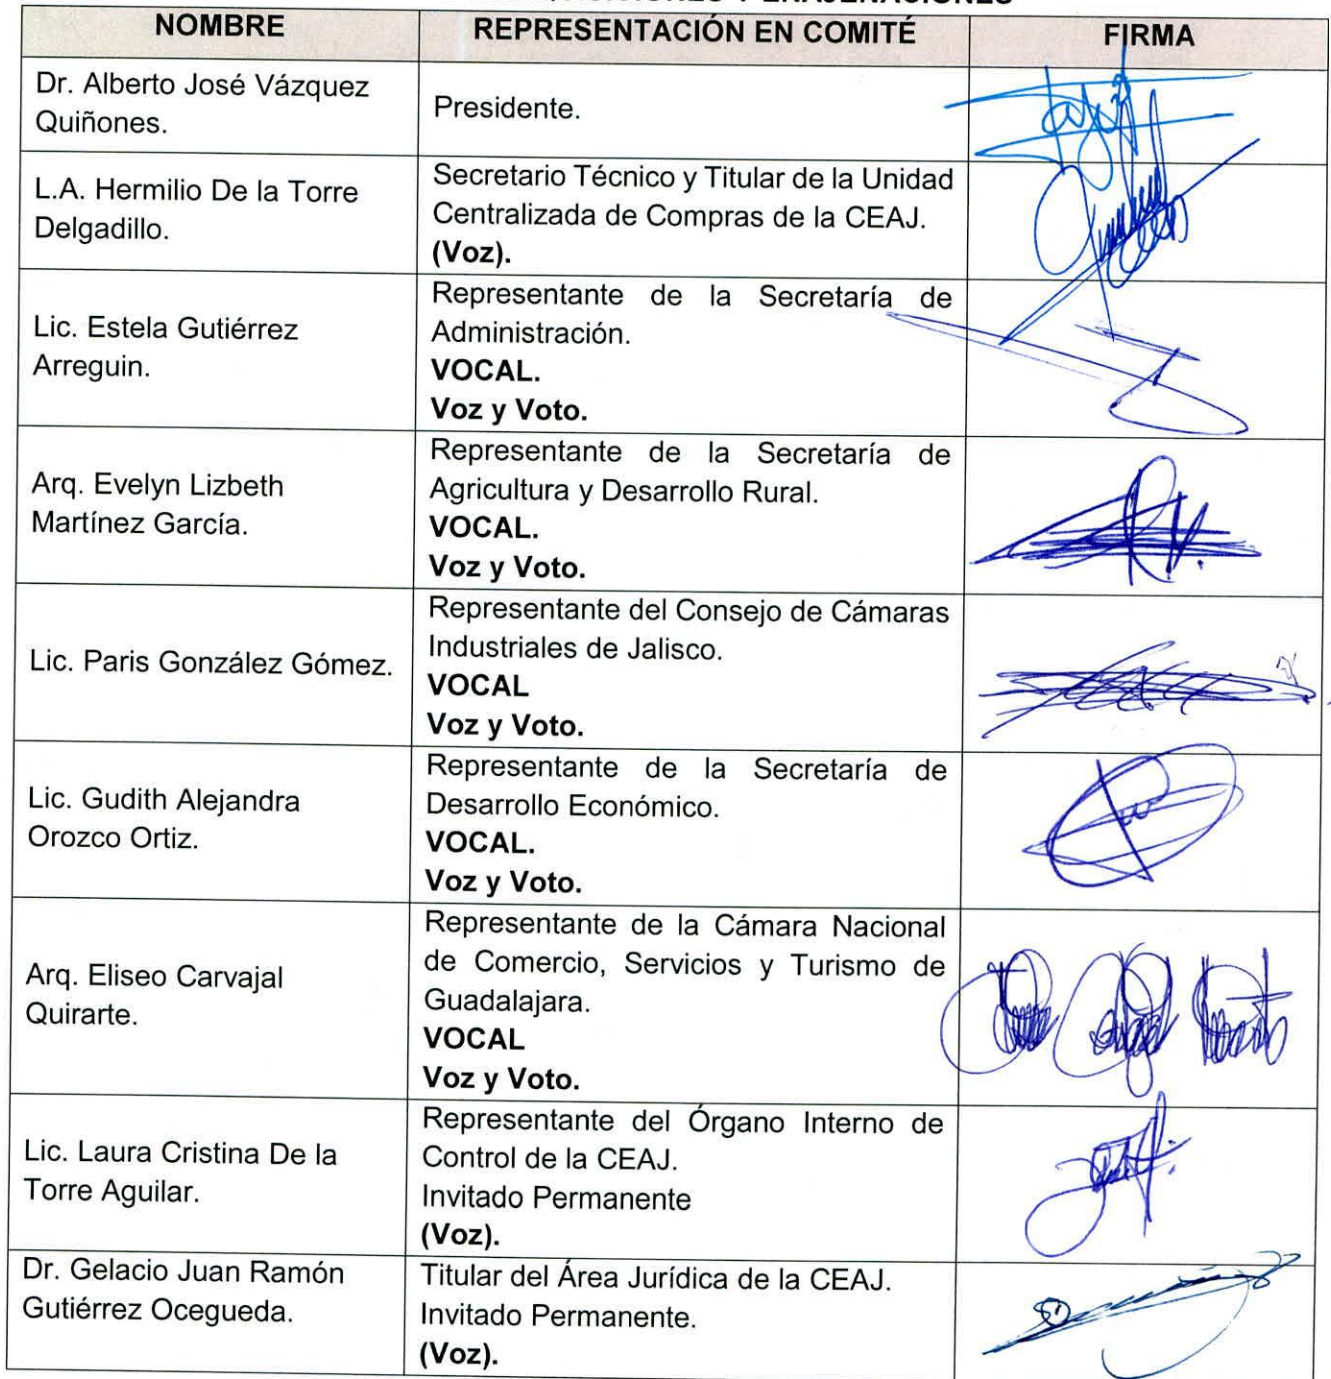 Y ENAJENACIONES
NOMBRE REPRESENTACIÓN EN COMITÉ FIRMA
Dr. Alberto José Vázquez
Quiñones.
Presidente.
L.A. Hermilio De la Torre
Delgadillo.
Secretario Técnico y Titular de la Unidad
Centralizada de Compras de la CEAJ.
(Voz).
Lic. Estela Gutiérrez
Arreguin.
Representante de la Secretaría de
Administración.
VOCAL.
Voz y Voto.
Arq. Evelyn Lizbeth
Martínez García.
Representante de la Secretaría de
Agricultura y Desarrollo Rural.
VOCAL.
Voz y Voto.
Lic. Paris González Gómez.
Representante del Consejo de Cámaras
Industriales de Jalisco.
VOCAL
Voz y Voto.
Lic. Gudith Alejandra
Orozco Ortiz.
Representante de la Secretaría de
Desarrollo Económico.
VOCAL.
Voz y Voto.
Arq. Eliseo Carvajal
Quirarte.
Representante de la Cámara Nacional
de Comercio, Servicios y Turismo de
Guadalajara.
VOCAL
Voz y Voto.
Lic. Laura Cristina De la
Torre Aguilar.
Representante del Órgano Interno de
Control de la CEAJ.
Invitado Permanente
(Voz).
Dr. Gelacio Juan Ramón
Gutiérrez Ocegueda.
Titular del Área Jurídica de la CEAJ.
Invitado Permanente.
(Voz).